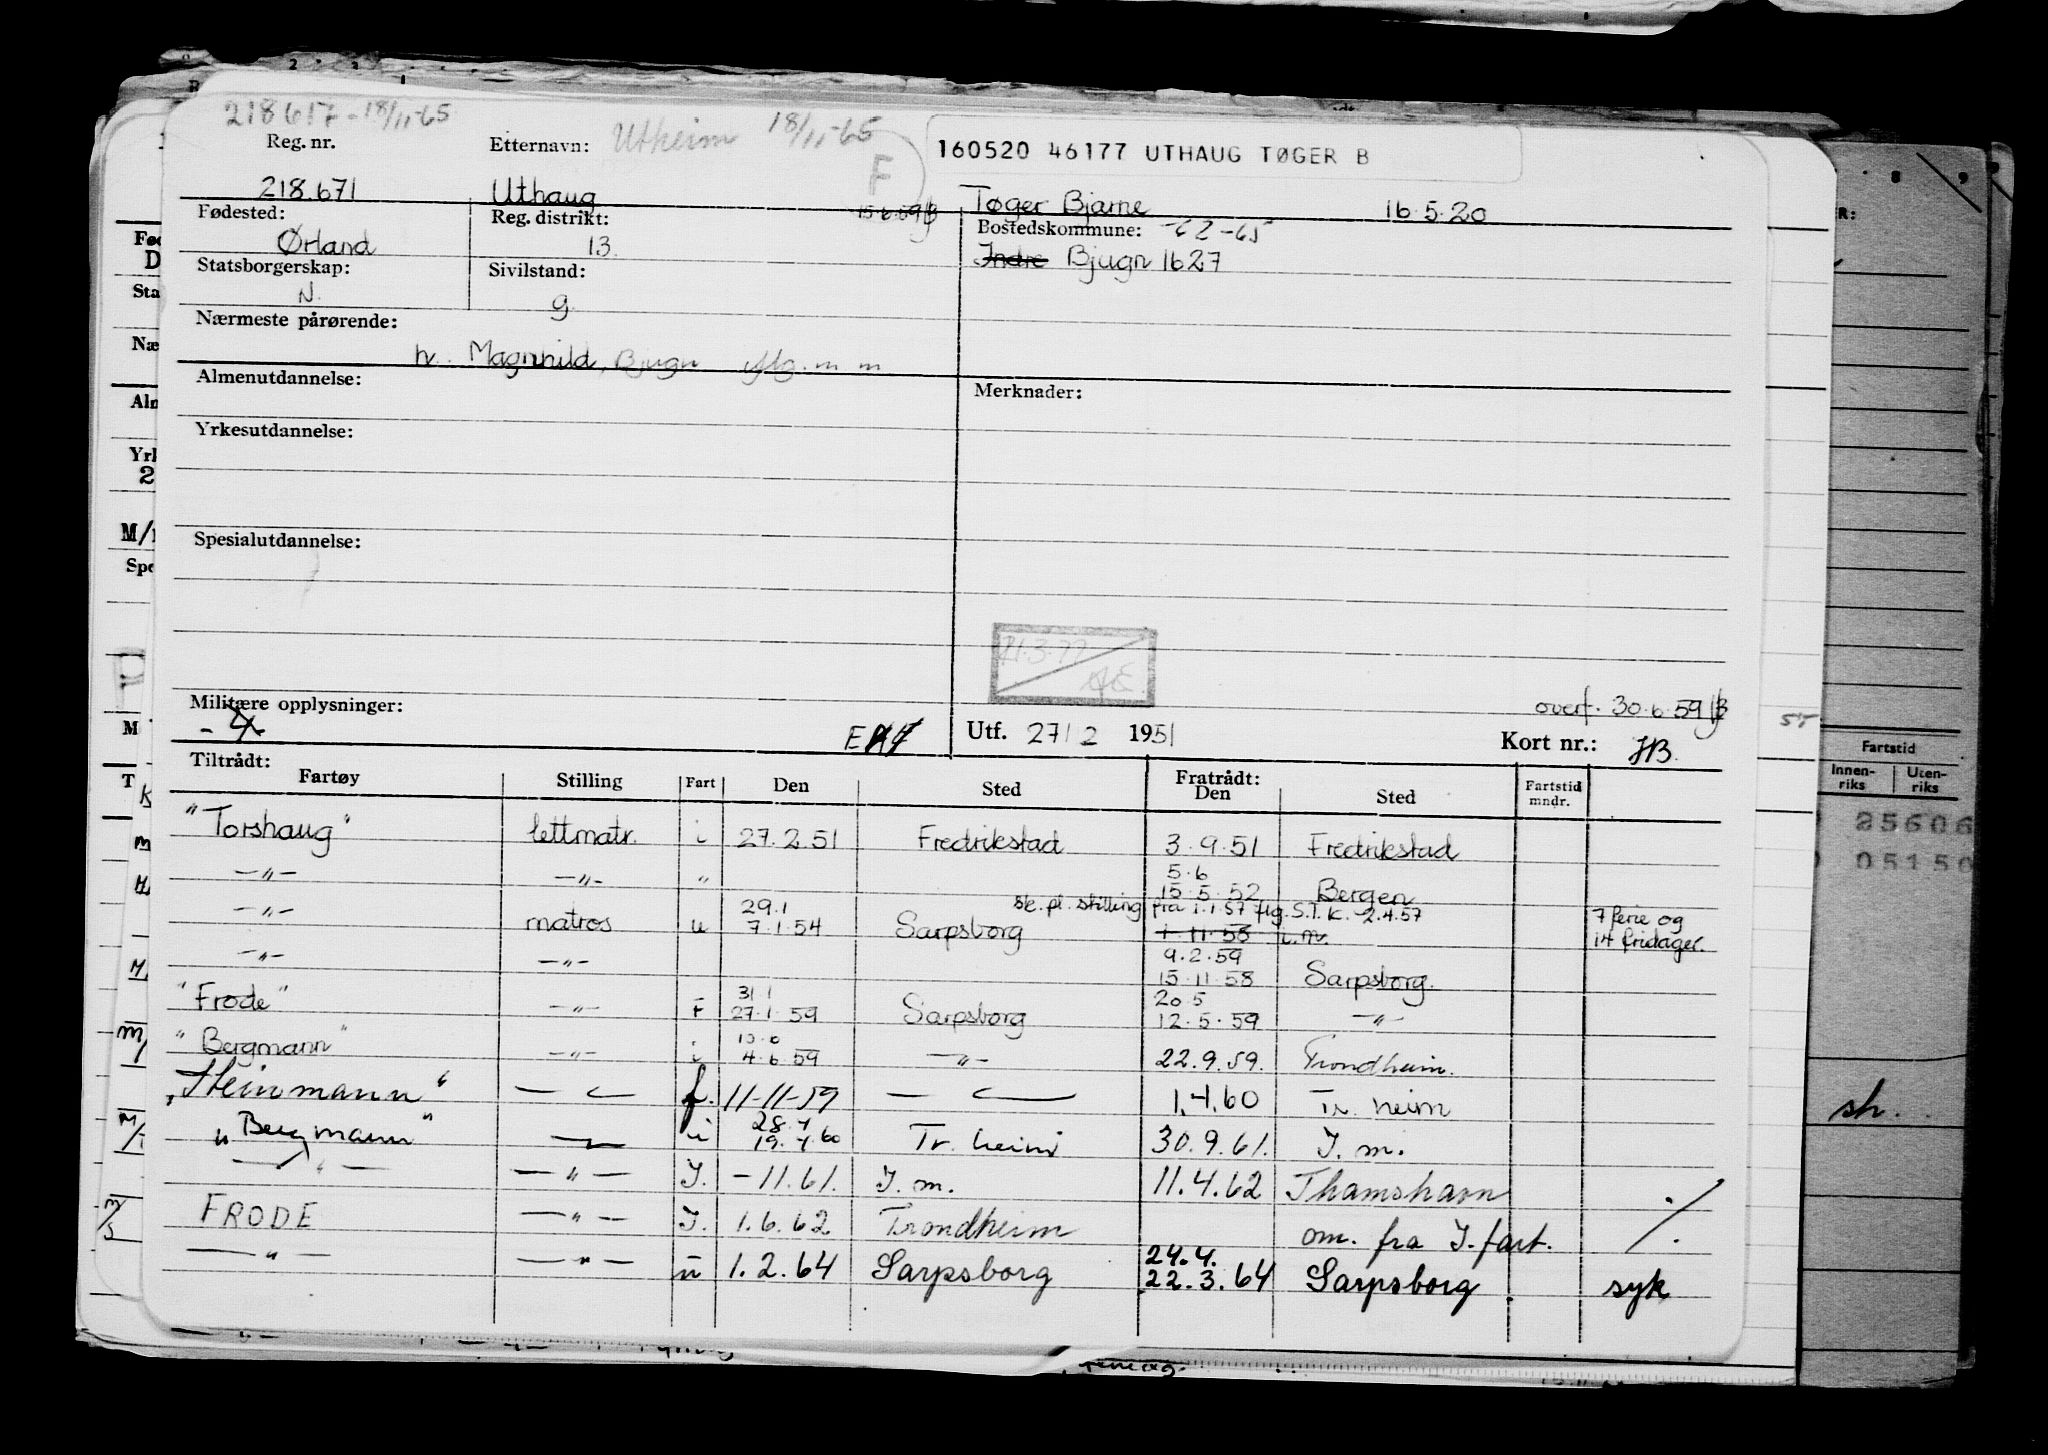 218617 - 18/11-65
Reg. nr. Etternavn: Utheim 18/11-65 F 160520 46177 UTHAUG TØGER B
218.671 Uthaug 15.6.59 Tøger Bjarne 16.5.20
Fødested: Reg. distrikt: Bostedskommune: -62-65
Ørland 13. Indre Bjugn 1627
Statsborgerskap: Sivilstand:
N. g.
Nærmeste pårørende:
h. Magnhild, Bjugn
Almenutdannelse: Merknader:
Yrkesutdannelse:
Spesialutdannelse:
Militære opplysninger: overf. 30.6.59
Utf. 27/2 1951 Kort nr.:
Tiltrådt: Fratrådt:
Fartøy Stilling Fart Den Sted Den Sted Fartstid mndr.
"Torshaug" lettmatr. i 27.2.51 Fredrikstad 3.9.51 Fredrikstad
-"- -"- " 5.6
15.5.52 Bergen
-"- matros u 29.1 sk. pl. stilling fra 1.1.57 flg. S.T.K. 2.4.57 7 ferie og
7.1.54 Sarpsborg 1.11.58 i.m. 14 fridager.
-"- -"- 9.2.59
15.11.58 Sarpsborg.
"Frode" -"- F 31.1 20.5
27.1.59 Sarpsborg 12.5.59 -"-
"Bergmann" -"- i 4.6.59 -"- 22.9.59. Trondheim.
"Steinmann" f. 11-11-59 1.4.60 Tr. heim
"Bergmann" u 28.4
19.4.60 Tr. heim 30.9.61. I. m.
-"- -"- I. -11.61. I. m. 11.4.62 Thamshavn
FRODE -"- I. 1.6.62 Trondheim om. fra I. fart. ./.
-"- -"- u 1.2.64 Sarpsborg 24.4.
22.3.64 Sarpsborg syk
Fartstid
Innenriks Utenriks
25606
05150
sh.